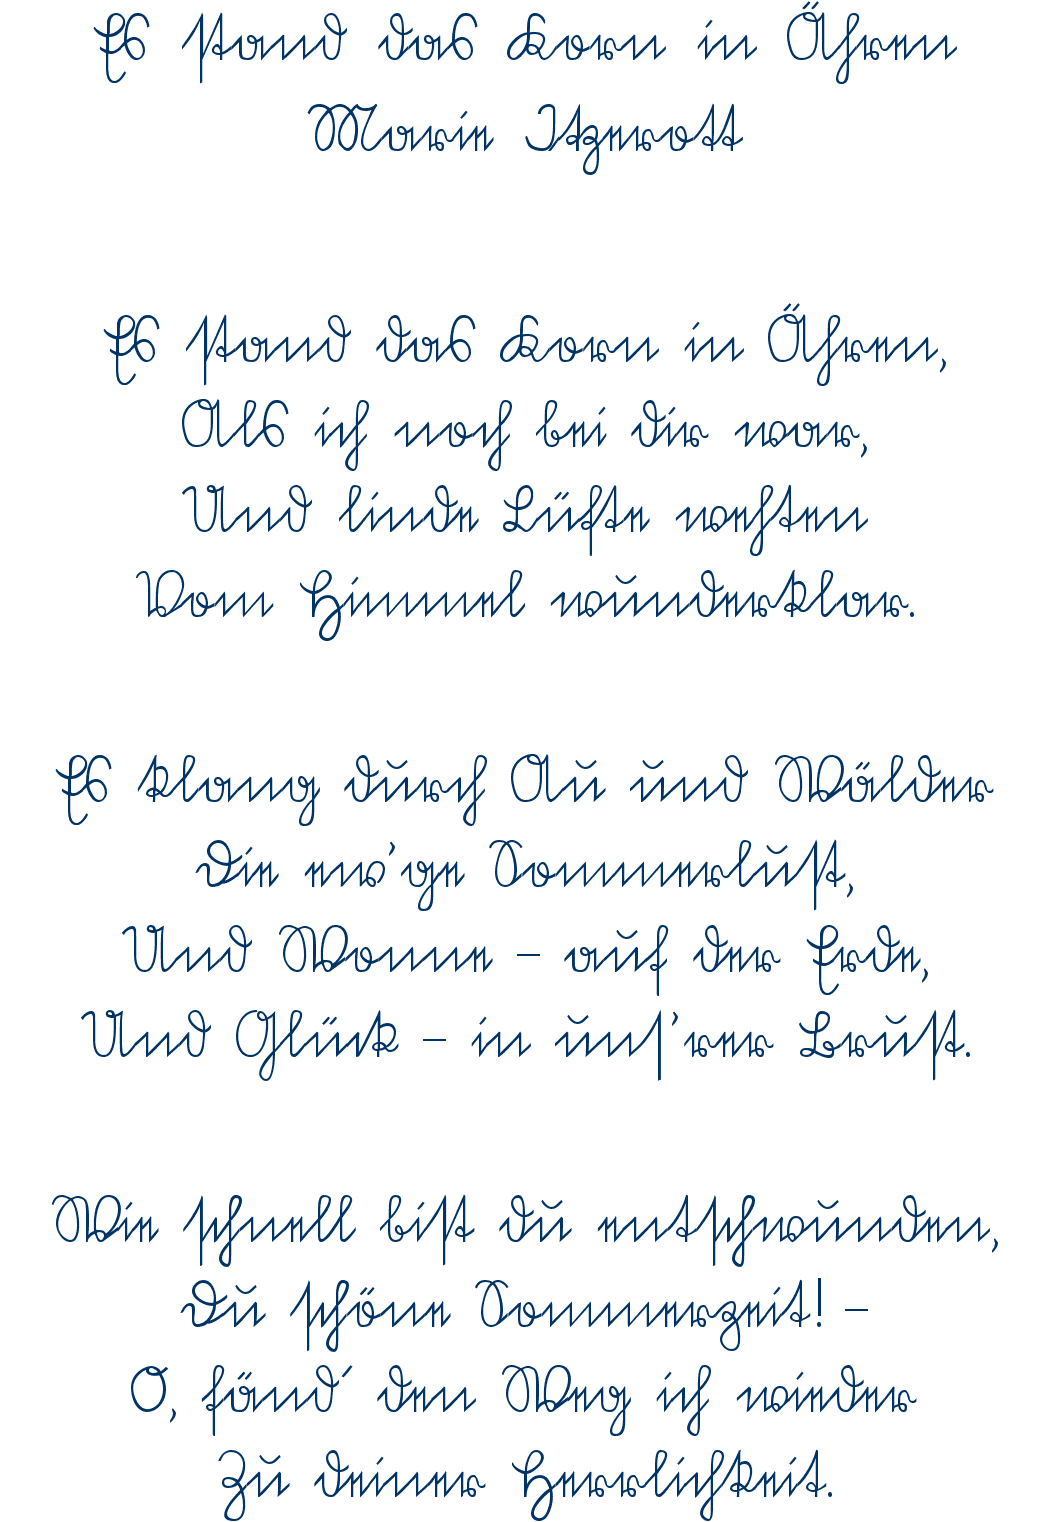 Es stand das Korn in Ähren
Marie Itzerott
Es stand das Korn in Ähren,
Als ich noch bei dir war,
Und linde Lüfte wehten
Vom Himmel wunderklar.
Es klang durch Au und Wälder
Die ew’ge Sommerlust,
Und Wonne – auf der Erde,
Und Glück – in uns’rer Brust.
Wie schnell bist du entschwunden,
Du schöne Sommerzeit! –
O, fänd´ den Weg ich wieder
Zu deiner Herrlichkeit.